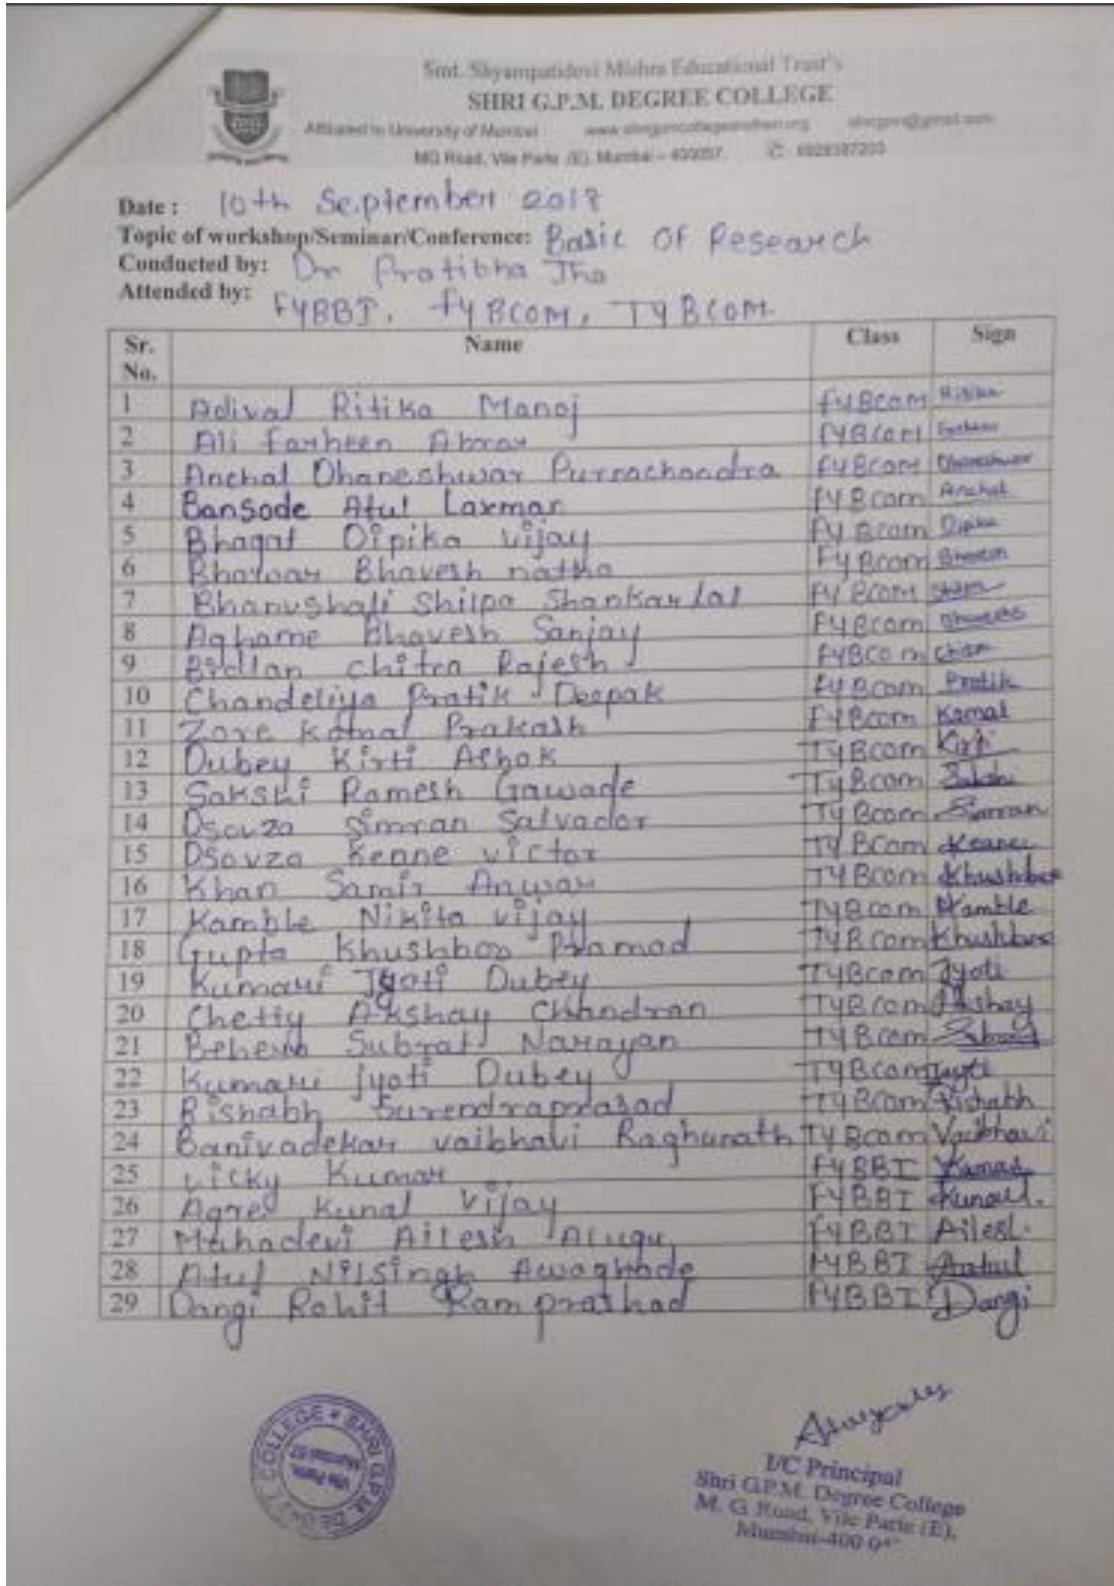 Smt. Shyampatidevi Mishra Educational Trust's
SHRI G.P.M. DEGREE COLLEGE
Affiliated to University of Mumbai
MG Road, Vile Parle (E), Mumbai – 400057.
Date : 10th September 2017
Topic of workshop/Seminar/Conference: Basic Of Research
Conducted by: Dr Pratibha Jha
Attended by: FYBBI, FYBCOM, TYBCOM.
Sr. No. Name Class Sign
1 Adival Ritika Manoj FYBCom Ritika
2 Ali Farheen Abrar FYBCom Farheen
3 Anchal Dhaneshwar Purnachandra FYBCom Dhaneshwar
4 Bansode Atul Laxman FYBCom Anchal
5 Bhagat Dipika Vijay FYBCom Dipika
6 Bharwar Bhavesh natha FYBCom
7 Bhanushali Shilpa Shankarlal FYBCom Shilpa
8 Aghame Bhavesh Sanjay FYBCom
9 Bidlan Chitra Rajesh FYBCom
10 Chandeliya Pratik Deepak FYBCom Pratik
11 Zore Komal Prakash FYBcom Komal
12 Dubey Kirti Ashok TYBcom Kirti
13 Sakshi Ramesh Gawade TYBcom Sakshi
14 Dsouza Simran Salvador TYBcom Simran
15 Dsouza Keane victor TYBcom Keane
16 Khan Samir Anwar TYBcom Khushboo
17 Kamble Nikita vijay TYBcom Kamble
18 Gupta Khushboo Pramod TYBcom Khushboo
19 Kumari Jyoti Dubey TYBcom Jyoti
20 Chetty Akshay Chandran TYBcom Akshay
21 Behera Subrat Narayan TYBcom
22 Kumari Jyoti Dubey TYBcom Jyoti
23 Rishabh Surendraprasad TYBcom Rishabh
24 Banivadekar vaibhavi Raghunath TYBcom Vaibhavi
25 Vicky Kumar FYBBI Kumar
26 Agre Kunal Vijay FYBBI Kunal.
27 Mahadevi Ailesh Alugu FYBBI Ailesh.
28 Atul Nilsingh Awaghade FYBBI
29 Dangi Rohit Ramprashad FYBBI Dangi
COLLEGE * SHRI G.P.M. DEGREE
Vile Parle,
I/C Principal
Shri G.P.M. Degree College
M. G. Road, Vile Parle (E),